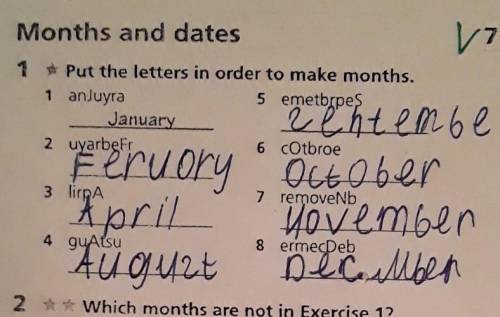 Months and dates
V 7
1 ☆ Put the letters in order to make months.
1 anJuyra
January
2 uyarbeFr
Feruory
3 lirpA
April
4 guAtsu
Auguzt
5 emetbrpeS
zehtembe
6 cOtbroe
October
7 removeNb
November
8 ermecDeb
December
2 ☆☆ Which months are not in Exercise 1?